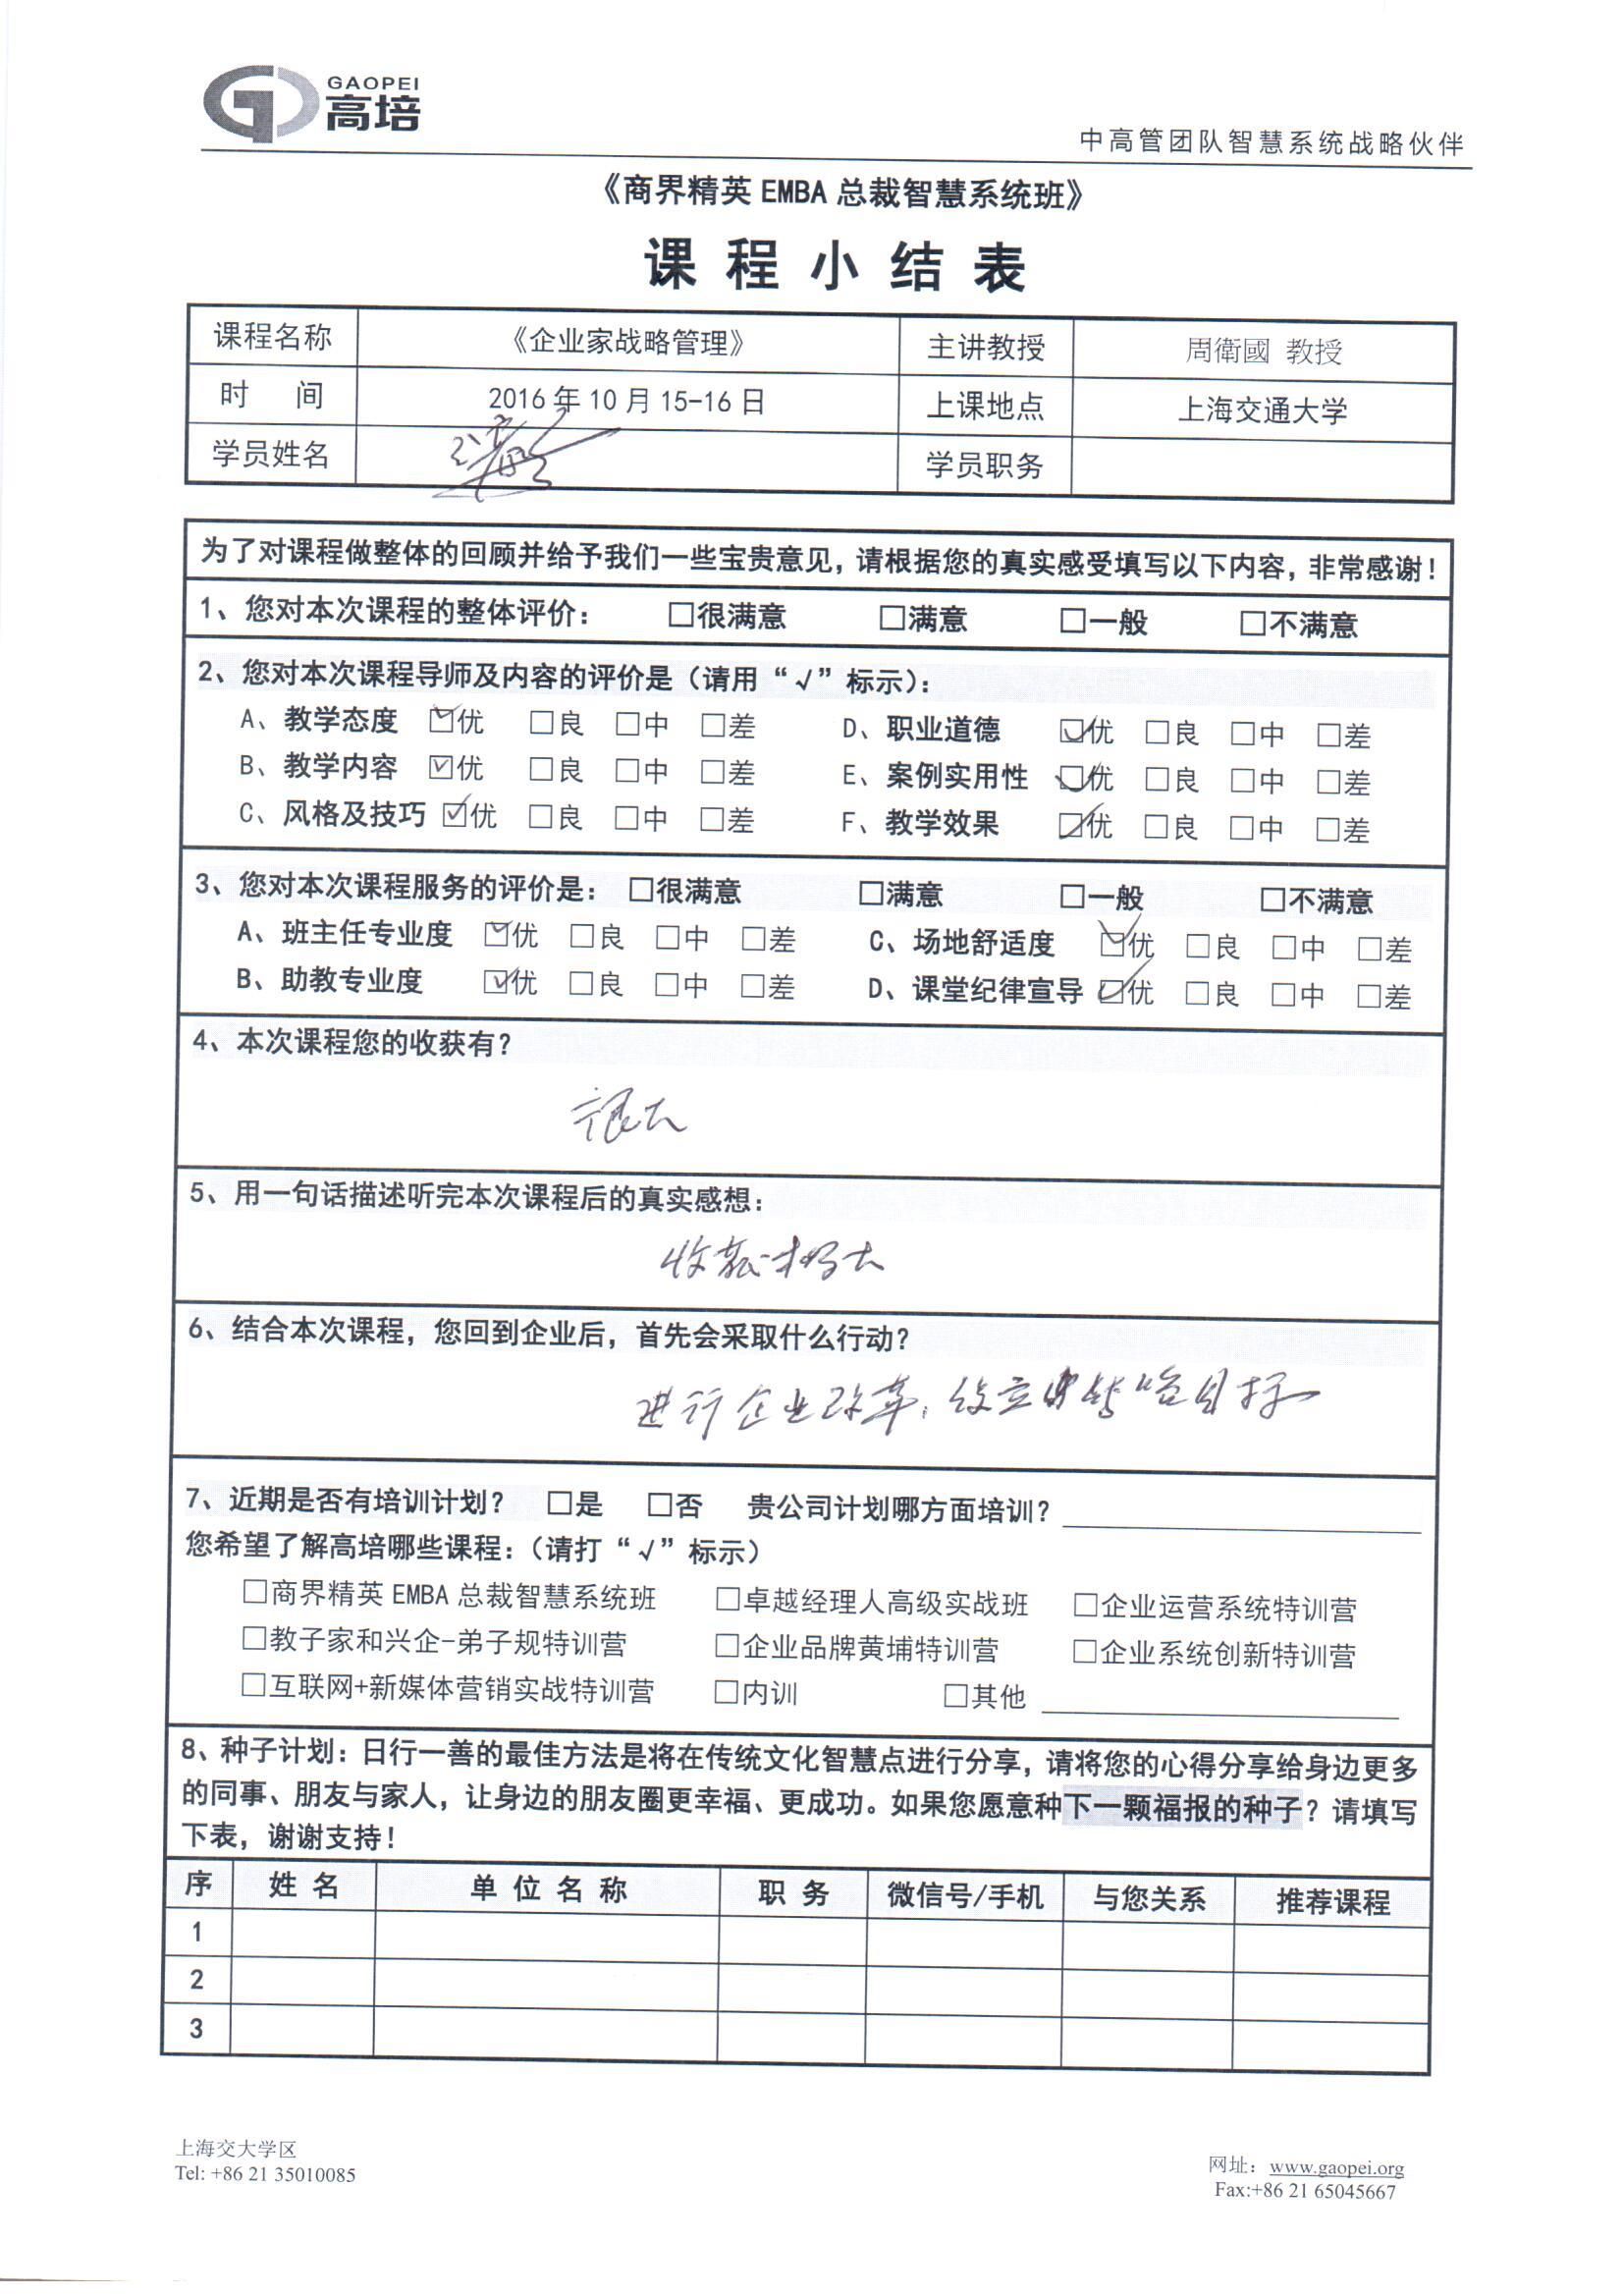 GAOPEI
高培
中高管团队智慧系统战略伙伴
《商界精英 EMBA 总裁智慧系统班》
课程小结表
课程名称 《企业家战略管理》 主讲教授 周衛國 教授
时 间 2016 年 10 月 15-16 日 上课地点 上海交通大学
学员姓名 学员职务
为了对课程做整体的回顾并给予我们一些宝贵意见，请根据您的真实感受填写以下内容，非常感谢！
1、您对本次课程的整体评价： □很满意 □满意 □一般 □不满意
2、您对本次课程导师及内容的评价是（请用“√”标示）：
A、教学态度 ☑优 □良 □中 □差 D、职业道德 ☑优 □良 □中 □差
B、教学内容 ☑优 □良 □中 □差 E、案例实用性 ☑优 □良 □中 □差
C、风格及技巧 ☑优 □良 □中 □差 F、教学效果 ☑优 □良 □中 □差
3、您对本次课程服务的评价是： □很满意 □满意 □一般 □不满意
A、班主任专业度 ☑优 □良 □中 □差 C、场地舒适度 ☑优 □良 □中 □差
B、助教专业度 ☑优 □良 □中 □差 D、课堂纪律宣导 ☑优 □良 □中 □差
4、本次课程您的收获有？
很大
5、用一句话描述听完本次课程后的真实感想：
收获大
6、结合本次课程，您回到企业后，首先会采取什么行动？
进行企业改革，设立目标
7、近期是否有培训计划？ □是 □否 贵公司计划哪方面培训？
您希望了解高培哪些课程：（请打“√”标示）
□商界精英 EMBA 总裁智慧系统班 □卓越经理人高级实战班 □企业运营系统特训营
□教子家和兴企-弟子规特训营 □企业品牌黄埔特训营 □企业系统创新特训营
□互联网+新媒体营销实战特训营 □内训 □其他
8、种子计划：日行一善的最佳方法是将在传统文化智慧点进行分享，请将您的心得分享给身边更多
的同事、朋友与家人，让身边的朋友圈更幸福、更成功。如果您愿意种下一颗福报的种子？请填写
下表，谢谢支持！
序 姓 名 单 位 名 称 职 务 微信号/手机 与您关系 推荐课程
1
2
3
上海交大学区
Tel: +86 21 35010085
网址：www.gaopei.org
Fax:+86 21 65045667